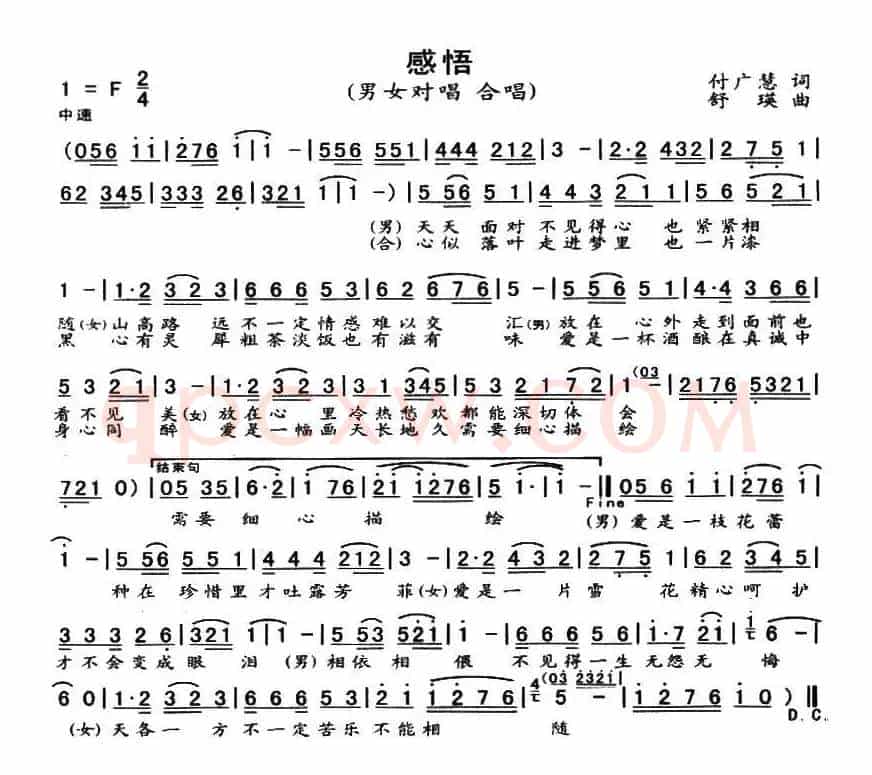 感悟
(男女对唱 合唱)
1 = F 2/4
中速
付广慧 词
舒瑛 曲
(056 i i|276 i|i -|556 551|444 212|3 -|2·2 432|2 7 5 1|
62 345|333 26|321 1|1 -)|5 56 5 1|4 4 3 2 1 1|5 6 5 2 1|
(男)天天 面对 不见得心 也紧紧相
(合)心似 落叶 走进梦里 也一片漆
1 -|1·2 3 2 3|6 6 6 5 3|6 2 6 7 6|5 -|5 5 6 5 1|4·4 3 6 6|
随(女)山高路 远不一定情感难以交 汇(男)放在 心外走到面前也
黑 心有灵 犀粗茶淡饭也有滋有 味 爱是一杯酒酿在真诚中
5 3 2 1|3 -|1·2 3 2 3|3 1 345|5 3 2 1 7 2|1 (03|2176 5321|
看不见 美(女)放在心 里冷热愁欢都能深切体 会
身心同 醉 爱是一幅画天长地久需要细心描 绘
qpcxw.com
721 0)|05 35|6·2|i 76|2i i276|5 i·|i -||056 i i|276 i|
结束句
Fine
需要 细 心 描 绘 (男)爱是一枝花蕾
i -|5 56 5 5 1|4 4 4 212|3 -|2·2 4 3 2|2 7 5 1|6 2 3 4 5|
种在 珍惜里才吐露芳 菲(女)爱是一 片雪 花精心呵护
3 3 3 2 6|321 1|1 -|5 53 521|6 6 6 5 6|1·7 21|6 -|
才不会变成眼 泪 (男)相依相 偎 不见得一生无怨无 悔
6 0|1·2 323|5 5 3 5 6|2 i|i 2 7 6|5 -|i 276 i 0)||
(03 2321
D.C.
(女)天各一 方不一定苦乐不能相 随